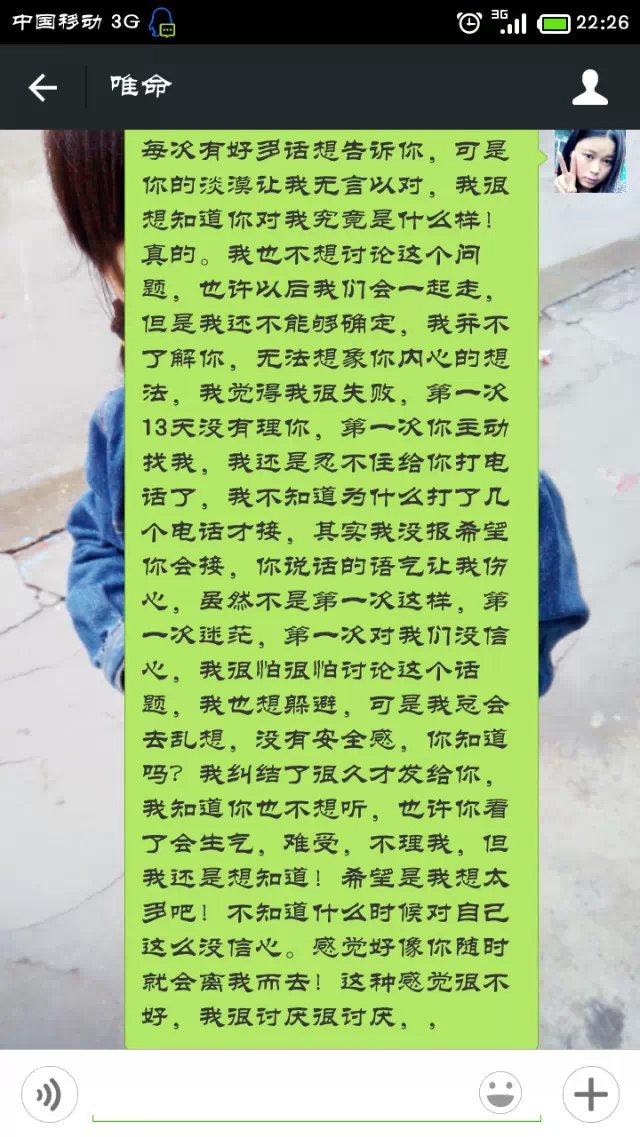 中国移动 3G 3G 22:26
唯命
每次有好多话想告诉你，可是
你的淡漠让我无言以对，我很
想知道你对我究竟是什么样！
真的。我也不想讨论这个问
题，也许以后我们会一起走，
但是我还不能够确定，我并不
了解你，无法想象你内心的想
法，我觉得我很失败，第一次
13天没有理你，第一次你主动
找我，我还是忍不住给你打电
话了，我不知道为什么打了几
个电话才接，其实我没报希望
你会接，你说话的语气让我伤
心，虽然不是第一次这样，第
一次迷茫，第一次对我们没信
心，我很怕很怕讨论这个话
题，我也想躲避，可是我总会
去乱想，没有安全感，你知道
吗？我纠结了很久才发给你，
我知道你也不想听，也许你看
了会生气，难受，不理我，但
我还是想知道！希望是我想太
多吧！不知道什么时候对自己
这么没信心。感觉好像你随时
就会离我而去！这种感觉很不
好，我很讨厌很讨厌，，